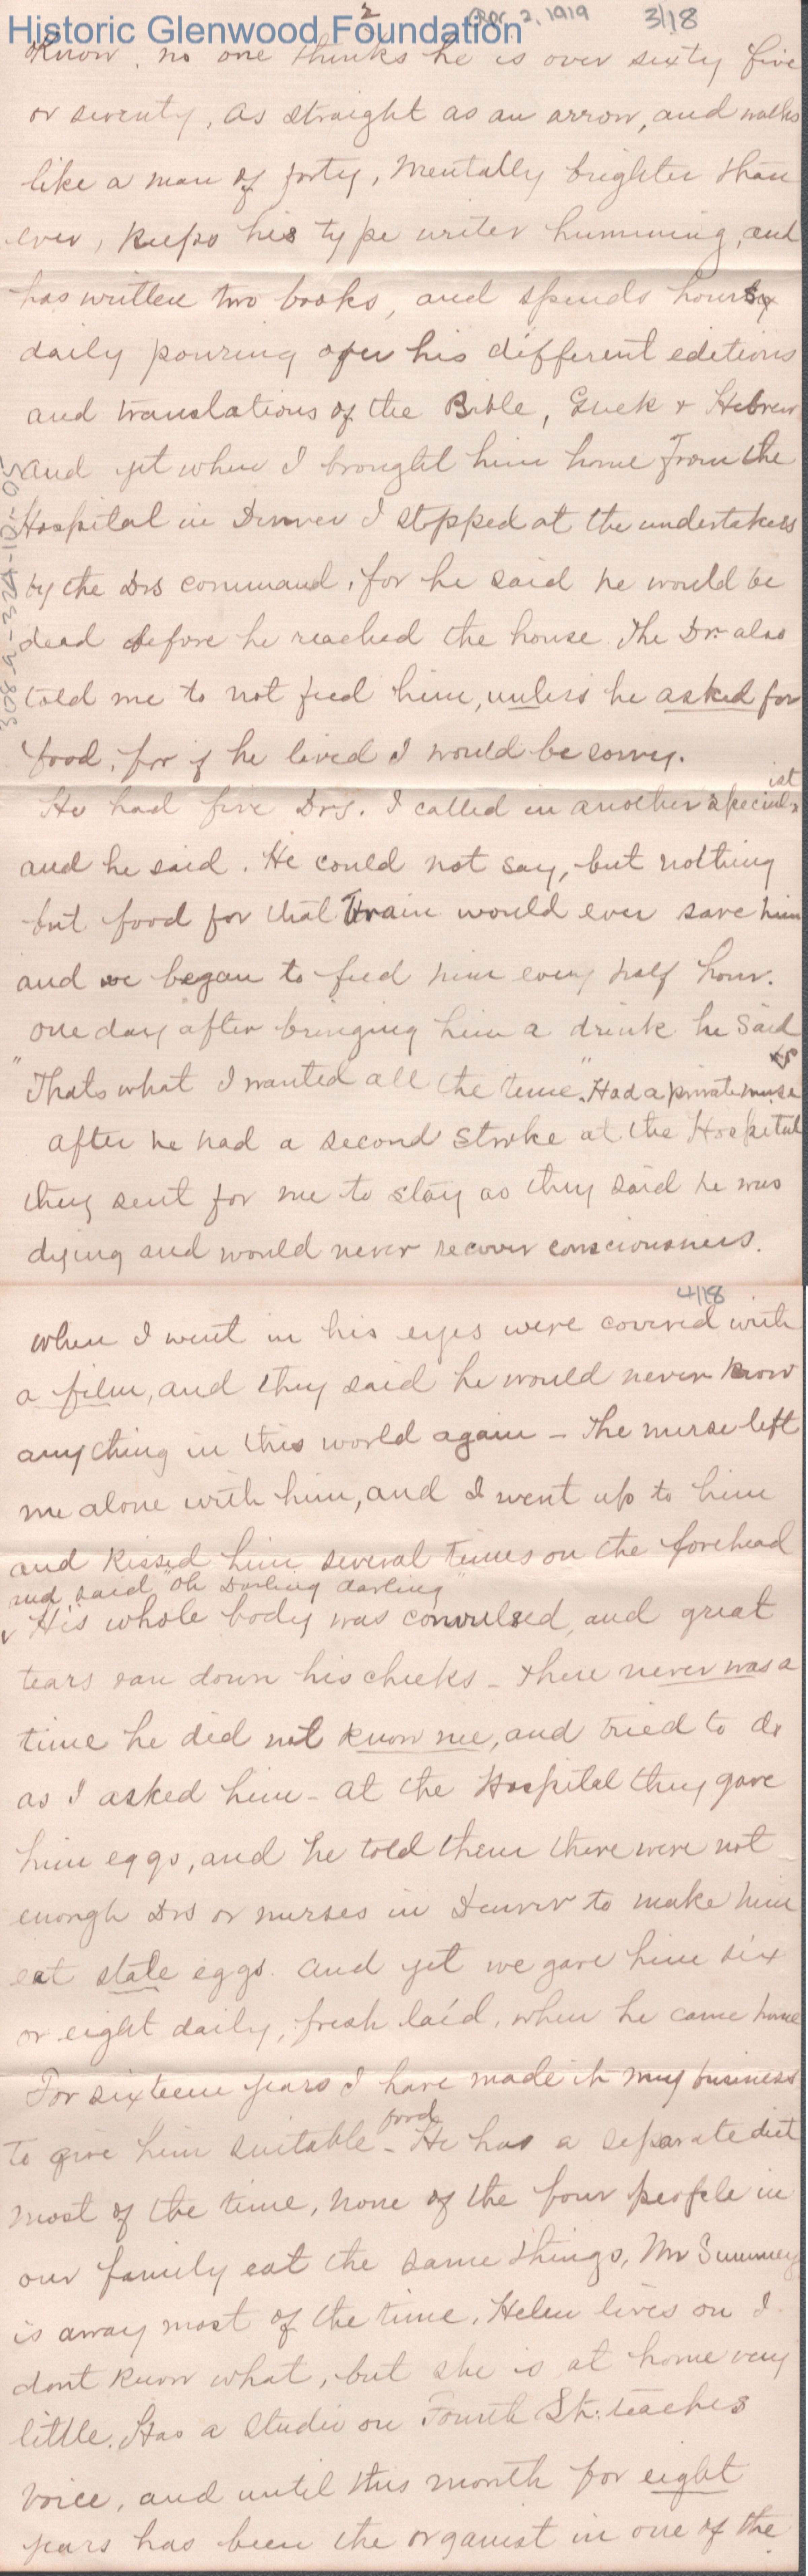 Historic Glenwood Foundation
2
Apr. 2, 1919
3/18
know, no one thinks he is over sixty five
or seventy, as straight as an arrow, and walks
like a man of forty, Mentally brighter than
ever, keeps his type writer humming, and
has written two books, and spends hours
daily pouring over his different editions
and translations of the Bible, Greek & Hebrew
and yet when I brought him home from the
Hospital in Denver I stopped at the undertakers
by the Drs command, for he said he would be
dead before he reached the house. The Dr. also
told me to not feed him, unless he asked for
food, for if he lived I would be sorry.
He had five Drs. I called in another specialist
and he said. He could not say, but nothing
but food for that brain would ever save him
and we began to feed him every half hour.
one day after bringing him a drink he said
"Thats what I wanted all the time". Had a private nurse
after he had a second stroke at the Hospital
they sent for me to stay as they said he was
dying and would never recover consciousness.
4/18
when I went in his eyes were covered with
a film, and they said he would never know
anything in this world again - The nurse left
me alone with him, and I went up to him
and kissed him several times on the forehead
and said "Oh Darling darling"
His whole body was convulsed, and great
tears ran down his cheeks - there never was a
time he did not know me, and tried to do
as I asked him - at the Hospital they gave
him eggs, and he told them there were not
enough Drs or nurses in Denver to make him
eat stale eggs. and yet we gave him six
or eight daily, fresh laid, when he came home
For sixteen years I have made it my business
to give him suitable food - He has a separate diet
most of the time, none of the four people in
our family eat the same things, Mr Summey
is away most of the time, Helen lives on I
dont know what, but she is at home very
little. Has a studio on Fourth St. teaches
voice, and until this month for eight
years has been the organist in one of the